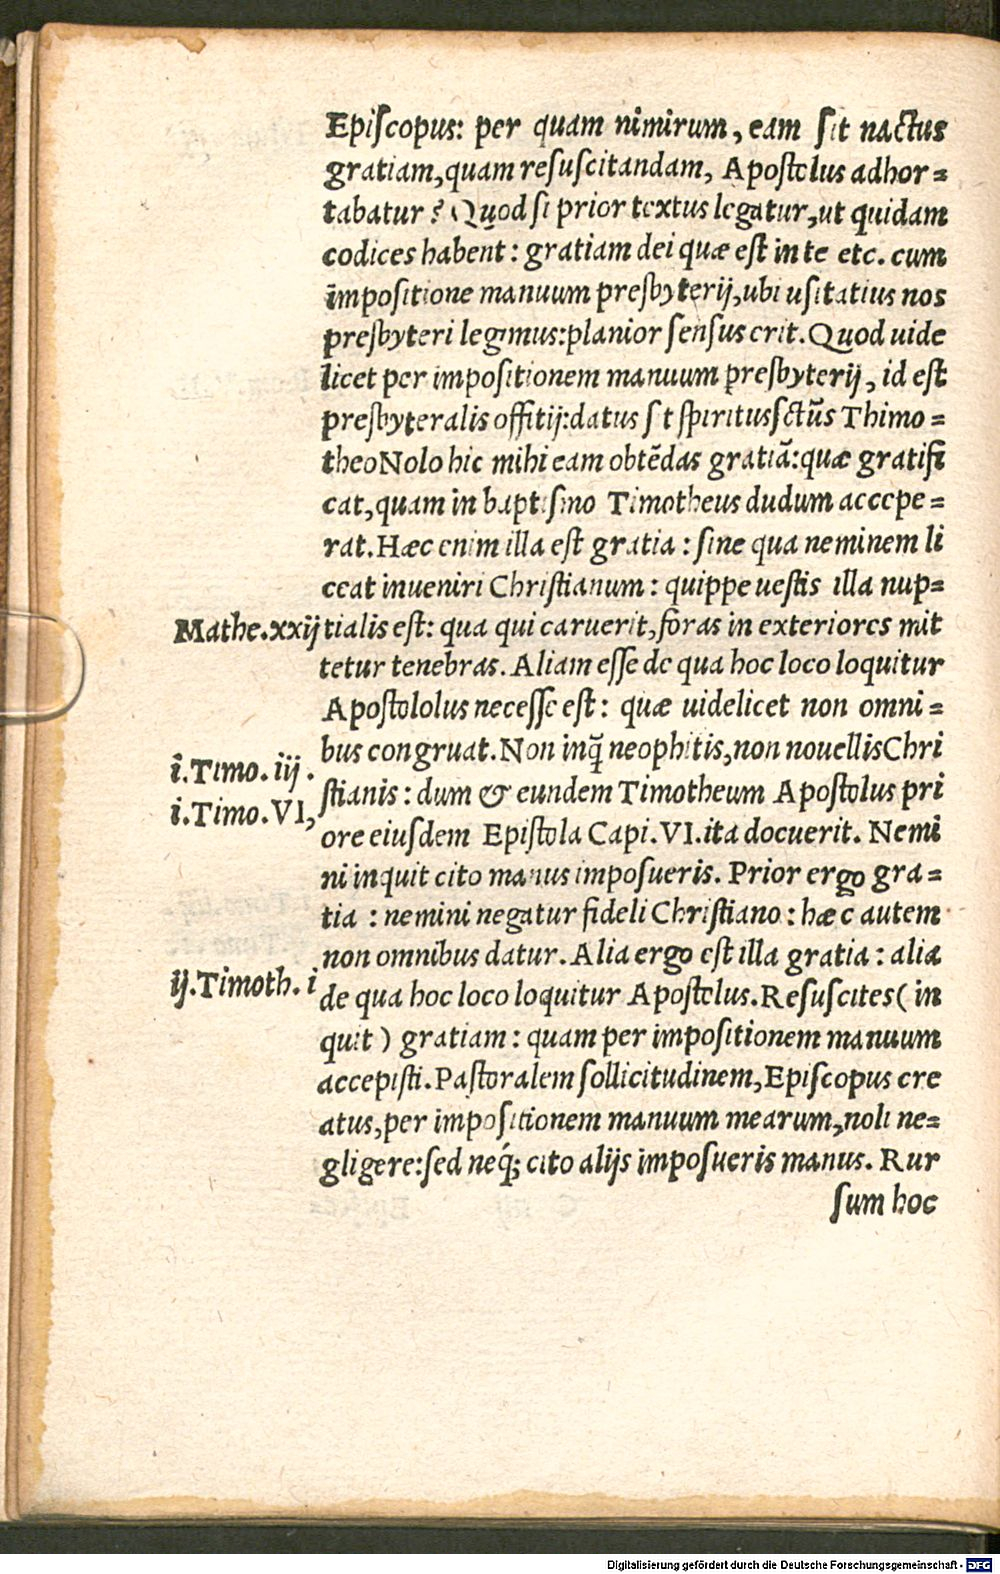 Episcopus: per quam nimirum, eam sit nactus
gratiam, quam resuscitandam, Apostolus adhor=
tabatur? Quod si prior textus legatur, ut quidam
codices habent: gratiam dei quæ est in te etc. cum
impositione manuum presbyterij, ubi usitatius nos
presbyteri legimus: planior sensus erit. Quod uide
licet per impositionem manuum presbyterij, id est
presbyteralis offitij: datus sit spiritus sctũs Thimo=
theo Nolo hic mihi eam obtẽdas gratiã: quæ gratifi
cat, quam in baptismo Timotheus dudum accepe=
rat. Hæc enim illa est gratia: sine qua neminem li
ceat inueniri Christianum: quippe uestis illa nup=
Mathe. xxij tialis est: qua qui caruerit, foras in exteriores mit
tetur tenebras. Aliam esse de qua hoc loco loquitur
Apostololus necesse est: quæ uidelicet non omni=
bus congruat. Non inq̃ neophitis, non nouellis Chri
i. Timo. iij.
stianis: dum & eundem Timotheum Apostolus pri
i. Timo. VI,
ore eiusdem Epistola Capi. VI. ita docuerit. Nemi
ni inquit cito manus imposueris. Prior ergo gra=
tia: nemini negatur fideli Christiano: hæc autem
non omnibus datur. Alia ergo est illa gratia: alia
ij. Timoth. i
de qua hoc loco loquitur Apostolus. Resuscites (in
quit) gratiam: quam per impositionem manuum
accepisti. Pastoralem sollicitudinem, Episcopus cre
atus, per impositionem manuum mearum, noli ne=
gligere: sed neq́; cito alijs imposueris manus. Rur
sum hoc
Digitalisierung gefördert durch die Deutsche Forschungsgemeinschaft - DFG